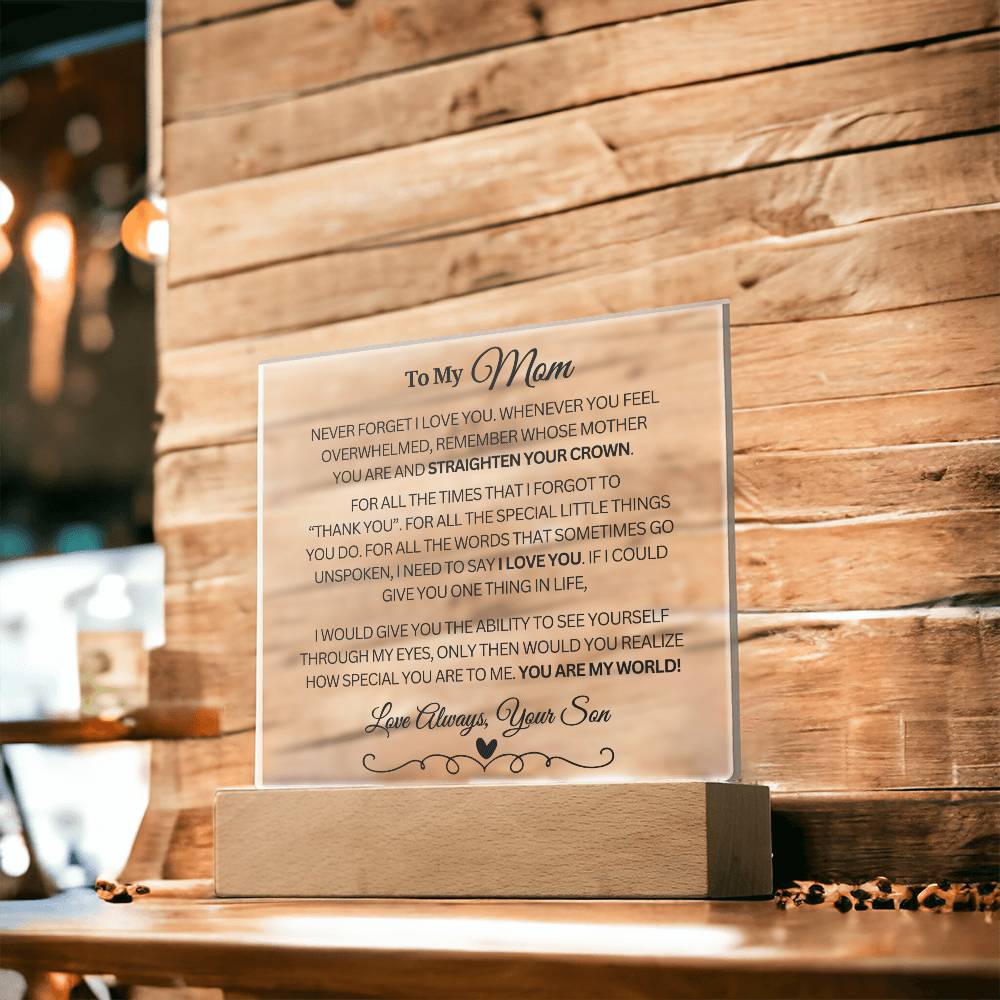 To My Mom
NEVER FORGET I LOVE YOU. WHENEVER YOU FEEL
OVERWHELMED, REMEMBER WHOSE MOTHER
YOU ARE AND STRAIGHTEN YOUR CROWN.
FOR ALL THE TIMES THAT I FORGOT TO
“THANK YOU”. FOR ALL THE SPECIAL LITTLE THINGS
YOU DO. FOR ALL THE WORDS THAT SOMETIMES GO
UNSPOKEN, I NEED TO SAY I LOVE YOU. IF I COULD
GIVE YOU ONE THING IN LIFE,
I WOULD GIVE YOU THE ABILITY TO SEE YOURSELF
THROUGH MY EYES, ONLY THEN WOULD YOU REALIZE
HOW SPECIAL YOU ARE TO ME. YOU ARE MY WORLD!
Love Always, Your Son